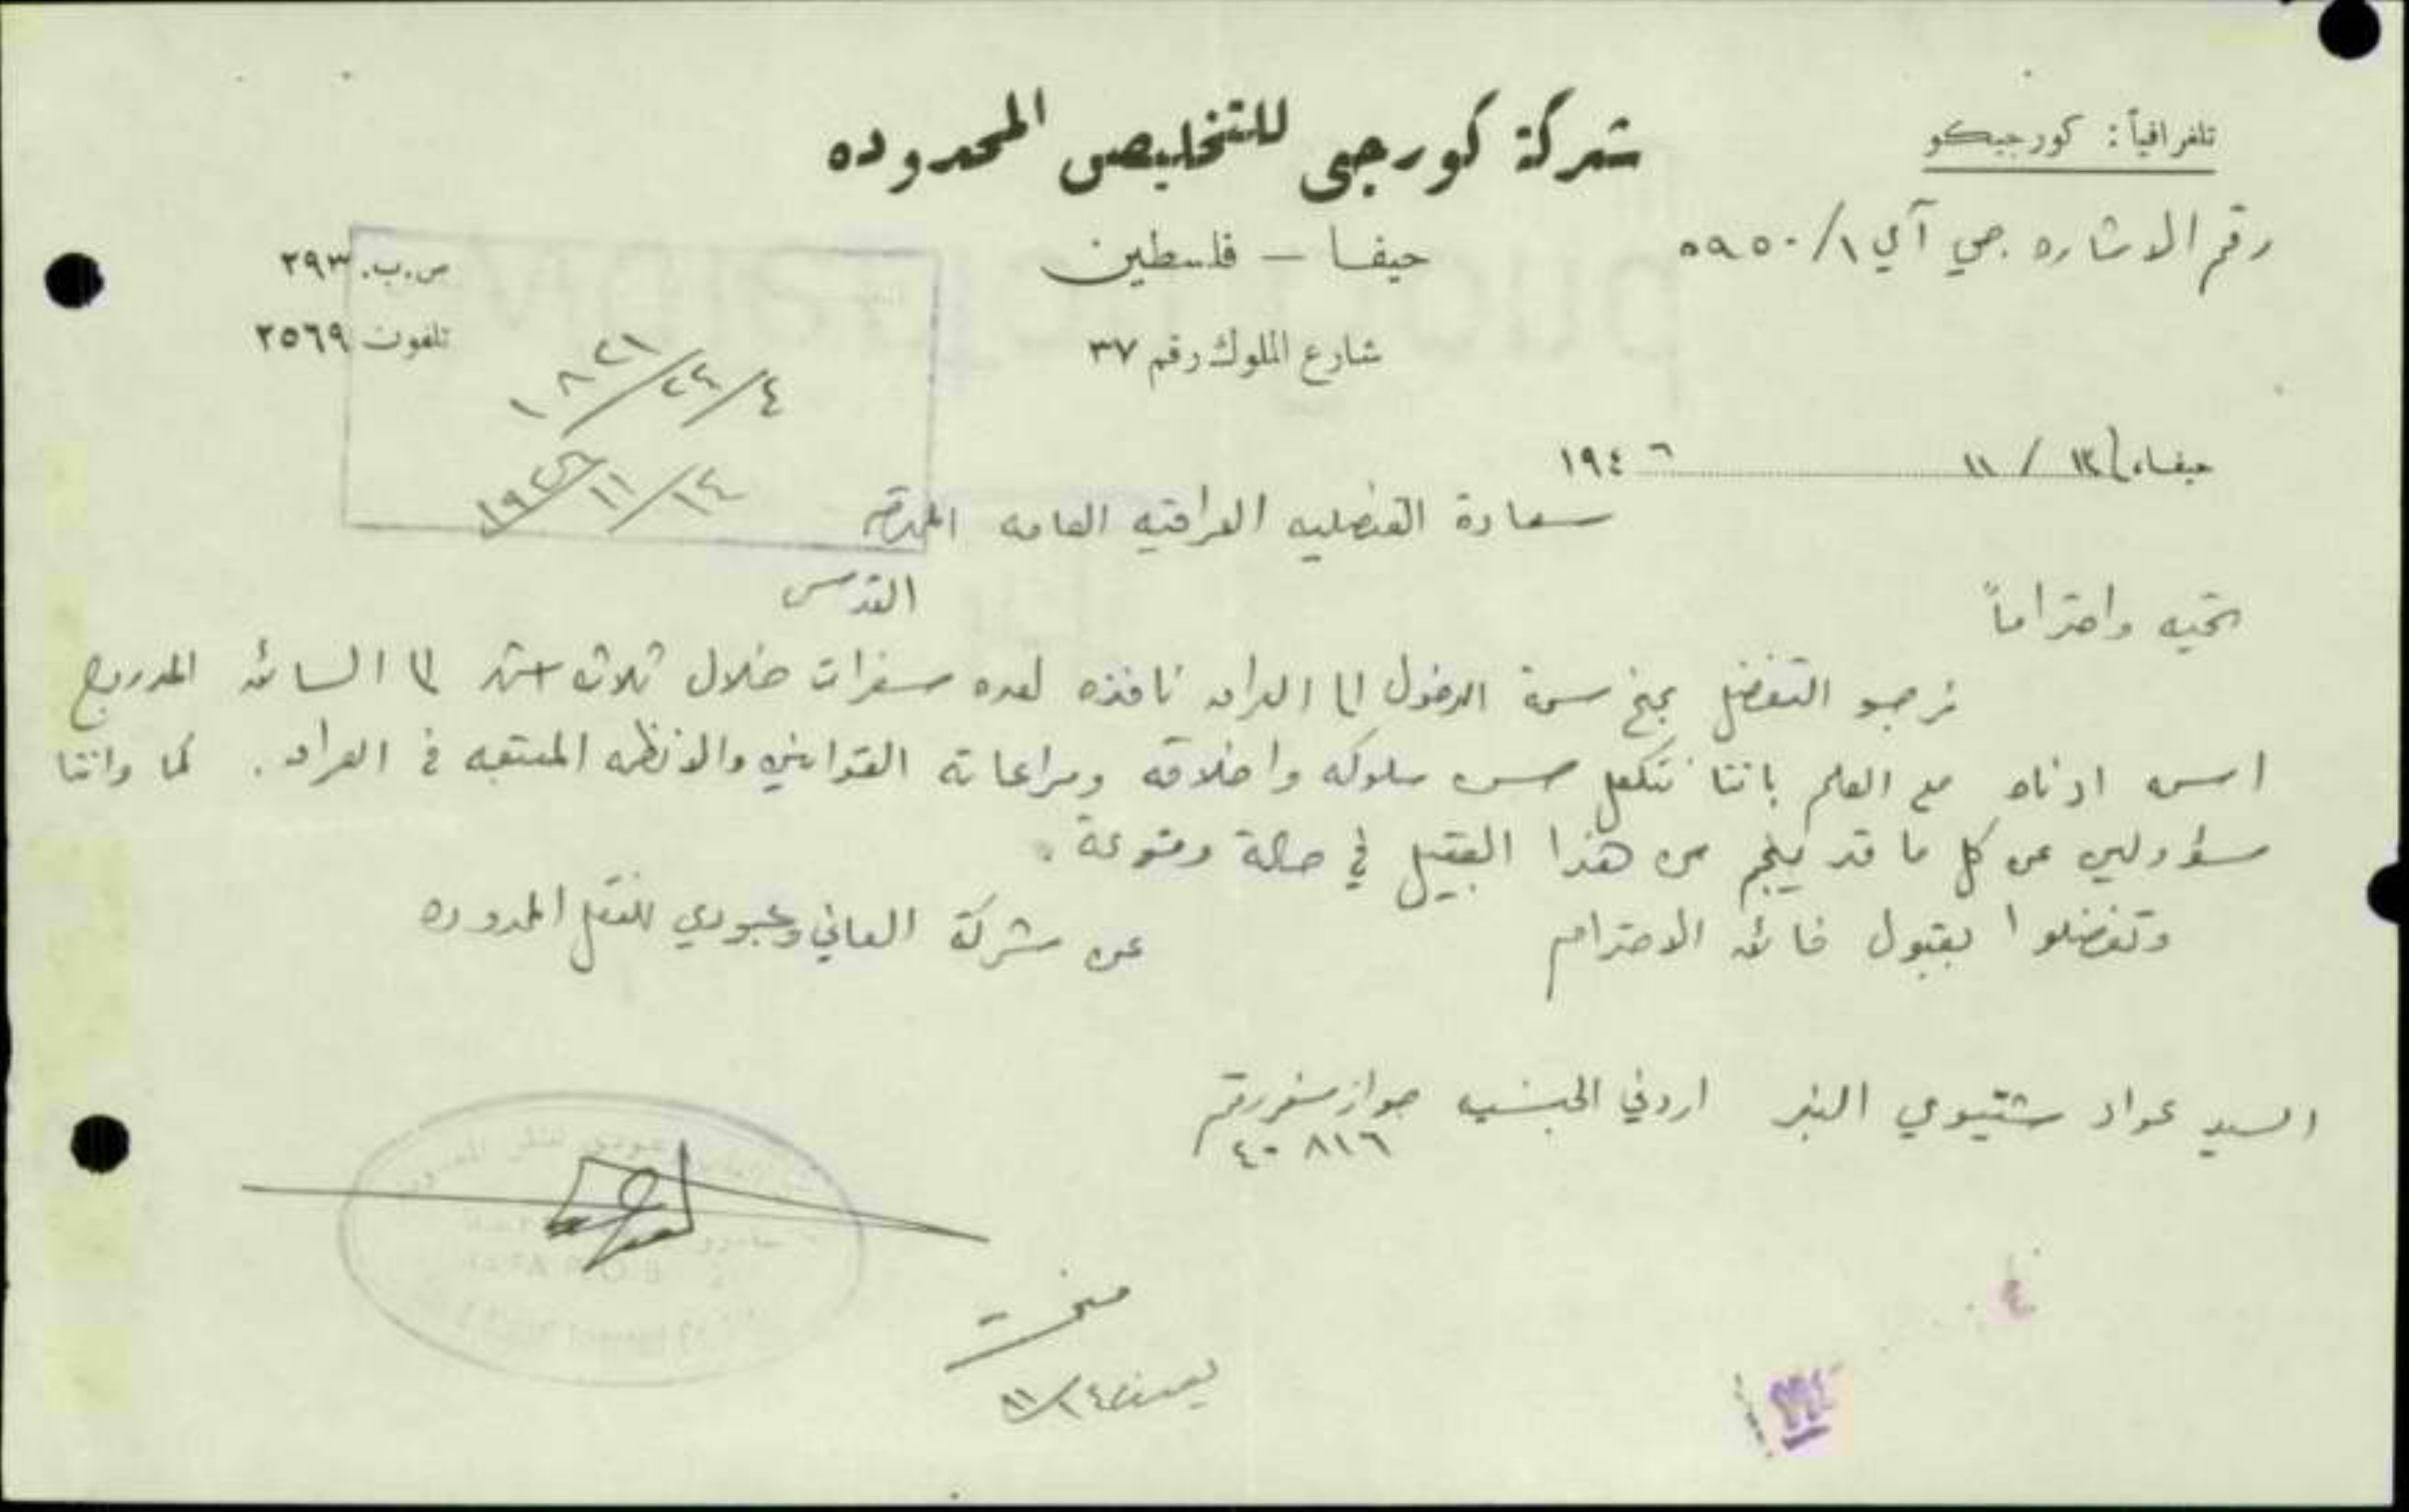 تلغرافياً : كورجيكو
شركة كورجي للتخليص المحدوده
رقم الاشاره جي آي ١/ ٥٩٥٠
حيفا - فلسطين
ص.ب. ٢٩٣
شارع الملوك رقم ٣٧
تلفون ٢٥٦٩
١٨٢١/٢٤/٤
حيفا، ١٢ / ١١ ١٩٤٦
١٩٤٦/١١/١٤
سعادة القنصليه العراقيه العامه المحترمه
القدس
تحيه واحتراماً
نرجو التفضل بمنح سمة الدخول الى العراق نافذه لعده سفرات خلال ثلاث اشهر الى السائق المدرج
اسمه ادناه مع العلم باننا نتكفل حسن سلوكه واخلاقه ومراعاته القوانين والانظمه المتبعه في العراق . كما واننا
مسؤولين عن كل ما قد ينجم من هذا القبيل في حالة وقوعه .
وتفضلوا بقبول فائق الاحترام
عن شركة العاني وعبودي للنقل المحدوده
السيد عواد شتيوي اردني الجنسيه جواز سفر رقم
٤٠٨١٦
منحت
١١/١٤